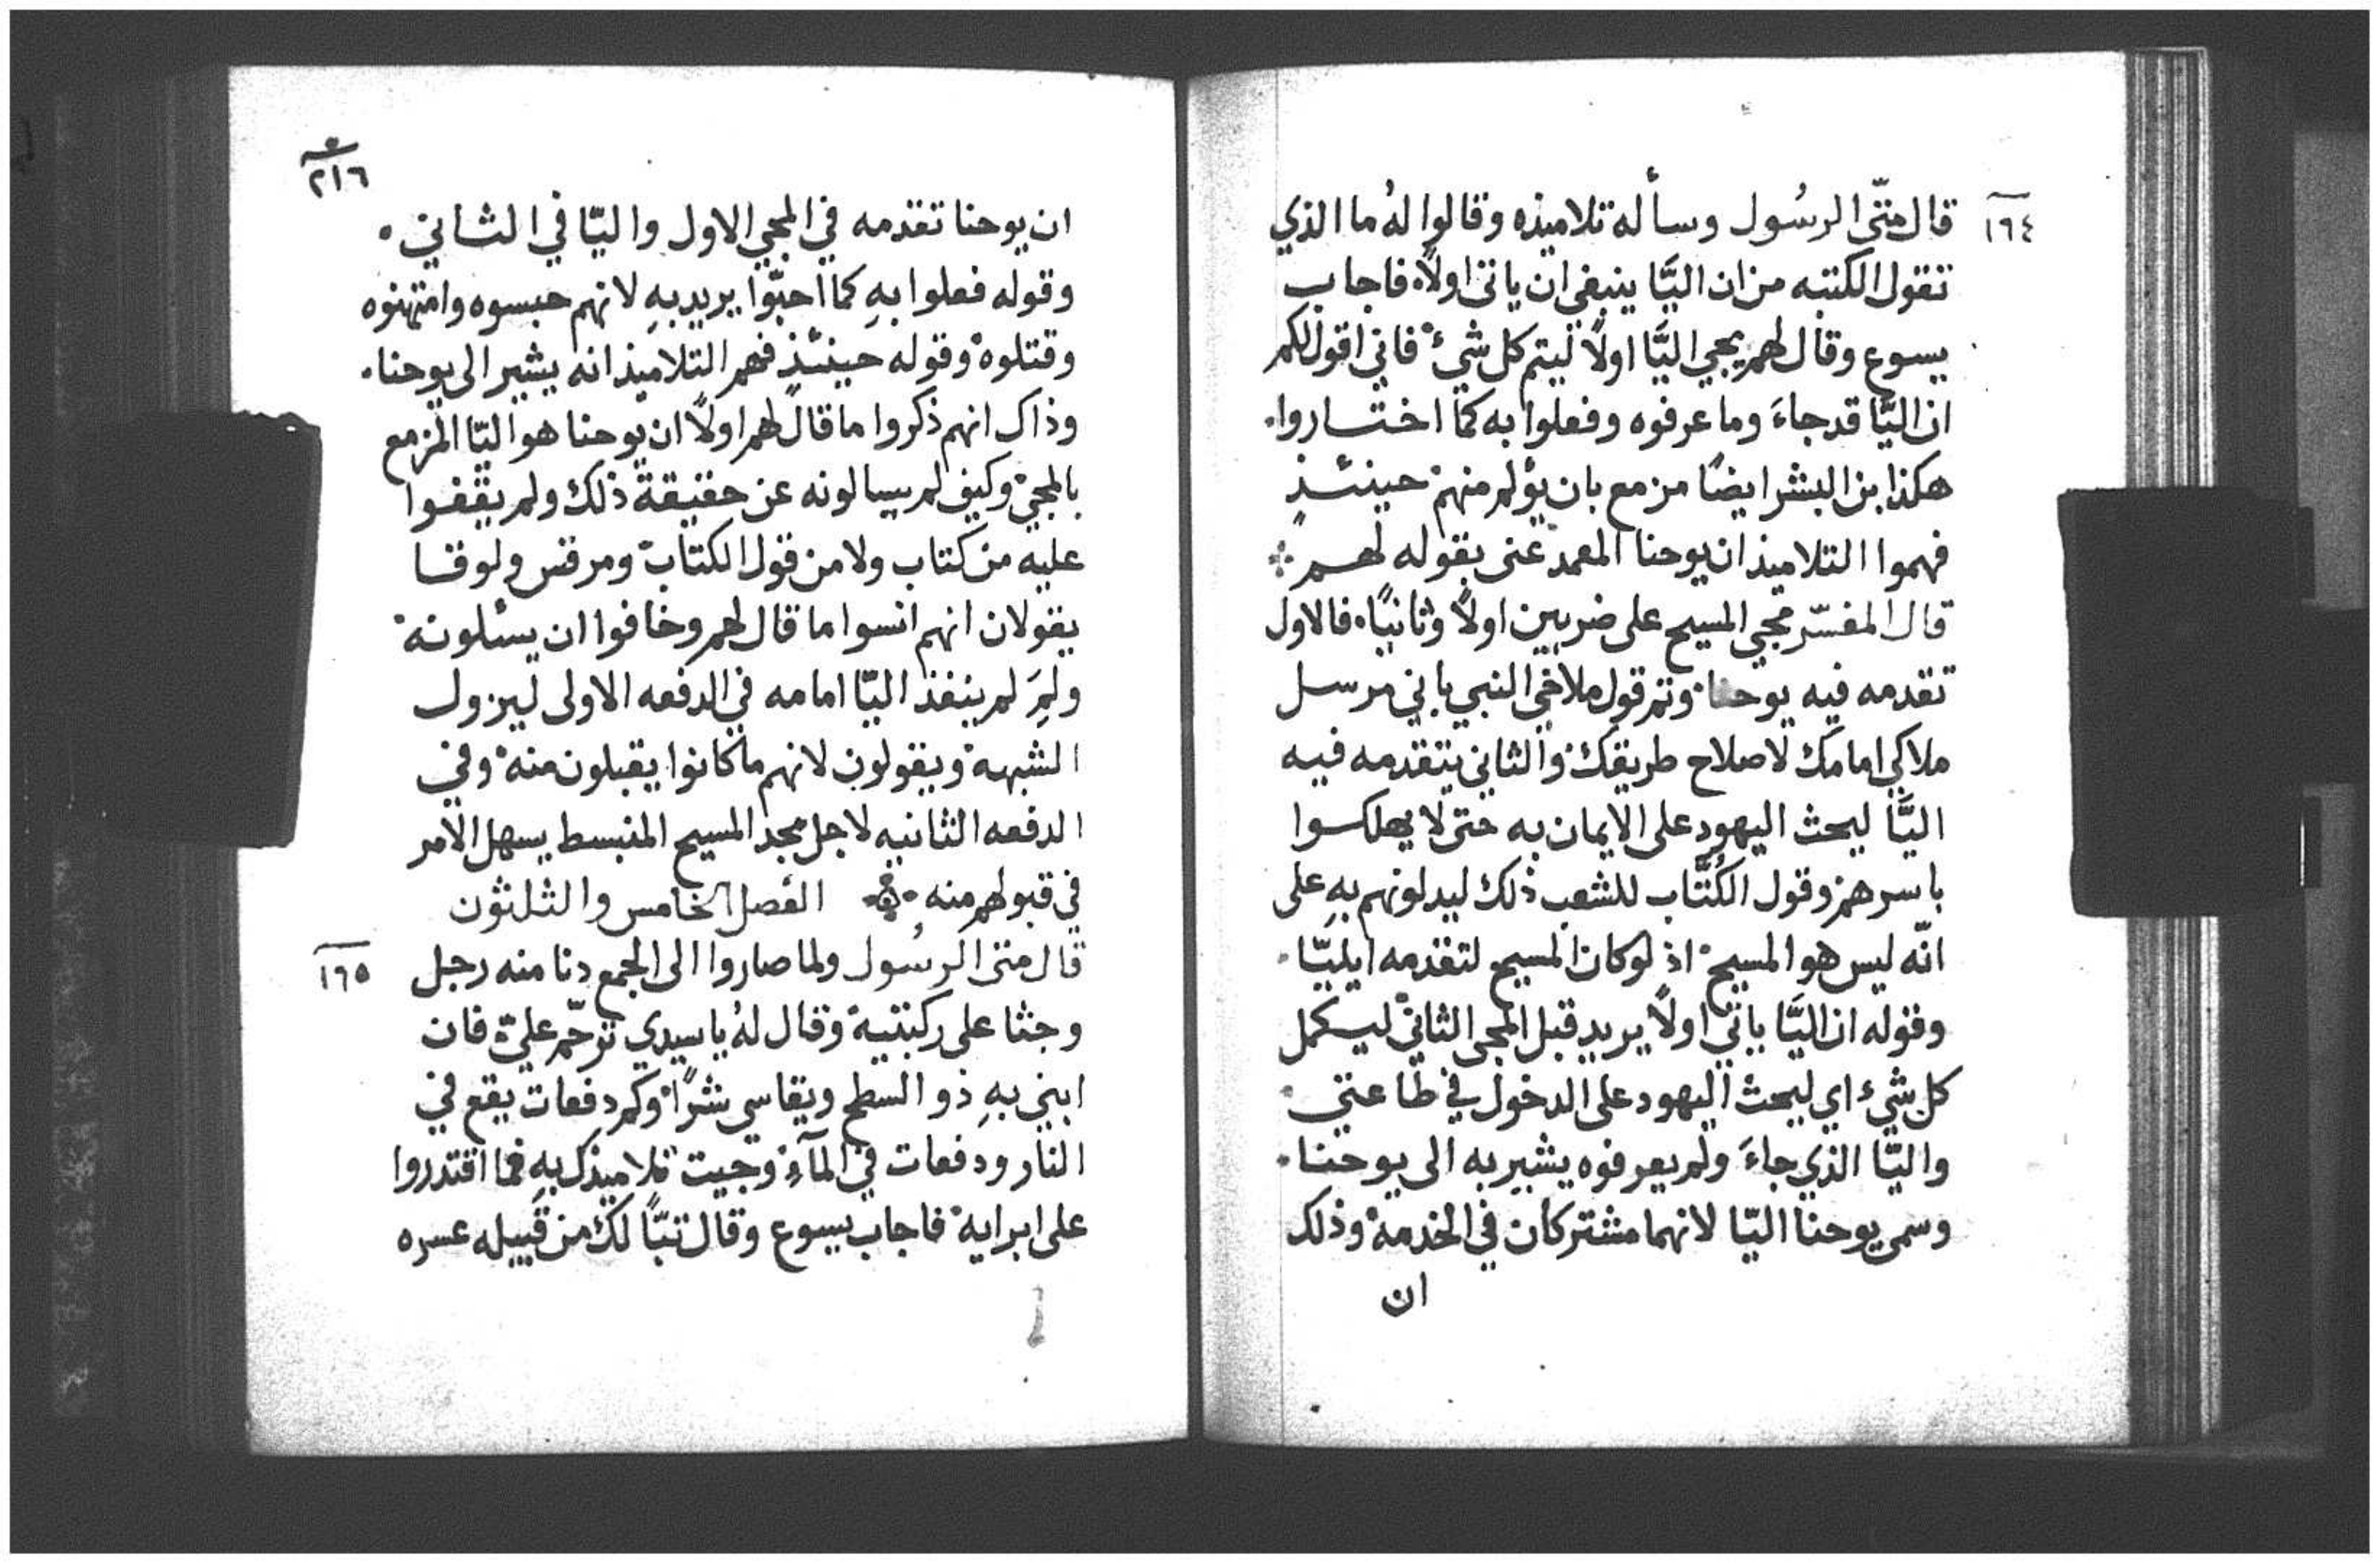 ١٦٤
قال متّى الرسُول وسأله تلاميذه وقالوا لهُ ما الذي
تقول الكتبه من ان اليَّا ينبغي ان ياتي اولاً. فاجاب
يسوع وقال لهم يجي اليَّا اولاً ليتم كل شيءٍ فاني اقول لكم
ان اليَّا قد جاءَ وما عرفوه وفعلوا به كما اختاروا.
هكذا بن البشر ايضًا مزمع بان يؤلم منهم حينئذٍ
فهموا التلاميذ ان يوحنا المعمد عنى بقوله لهم
قال المفسّر مجي المسيح على ضربين اولاً وثانيًا. فالاول
تقدمه فيه يوحنا وتم قول ملاخي النبي باني مرسل
ملاكي امامك لاصلاح طريقك والثاني يتقدمه فيه
اليَّا ليحث اليهود على الايمان به حتى لا يهلكوا
باسرهم وقول الكُتَّاب للشعب ذلك ليدلونهم بهِ على
انّه ليس هو المسيح اذ لو كان المسيح لتقدمه ايليّا.
وقوله ان اليَّا ياتي اولاً يريد قبل المجى الثاني ليكمل
كل شيء اي ليحث اليهود على الدخول في طاعتي
واليّا الذي جاءَ ولم يعرفوه يشير به الى يوحنا.
وسمى يوحنا اليّا لانهما مشتركان في الخدمة وذلك
ان
٢١٦
ان يوحنا تقدمه في المجي الاول واليّا في الثاني.
وقوله فعلوا بهِ كما احبّوا يريد بهِ لانهم حبسوه وامتهنوه
وقتلوه وقوله حينئذٍ فهم التلاميذ انه يشير الى يوحنا.
وذاك انهم ذكروا ما قال لهم اولاً ان يوحنا هو اليّا المزمع
بالمجي وكيف لم يسالونه عن حقيقة ذلك ولم يقفوا
عليه من كتاب ولا من قول الكتاب ومرقس ولوقسا
يقولان انهم انسوا ما قال لهم وخافوا ان يسئلونه
ولِمَ لم ينفذ اليّا امامه في الدفعه الاولى ليزول
الشبهة ويقولون لانهم ما كانوا يقبلون منه وفي
الدفعه الثانيه لاجل مجد المسيح المنبسط يسهل الامر
في قبولهم منه الفصل الخامس والثلثون
١٦٥
قال متى الرسُول ولما صاروا الى الجمع دنا منه رجل
وجثا على ركبتيه وقال لهُ يا سيدي ترحّم عليّ فان
ابني بهِ ذو السطح ويقاسي شرًا وكم دفعات يقع في
النار ودفعات في المآءِ وجيت تلاميذك بهِ فما اقتدروا
على ابرايه فاجاب يسوع وقال تبًّا لك من قبيله عسره